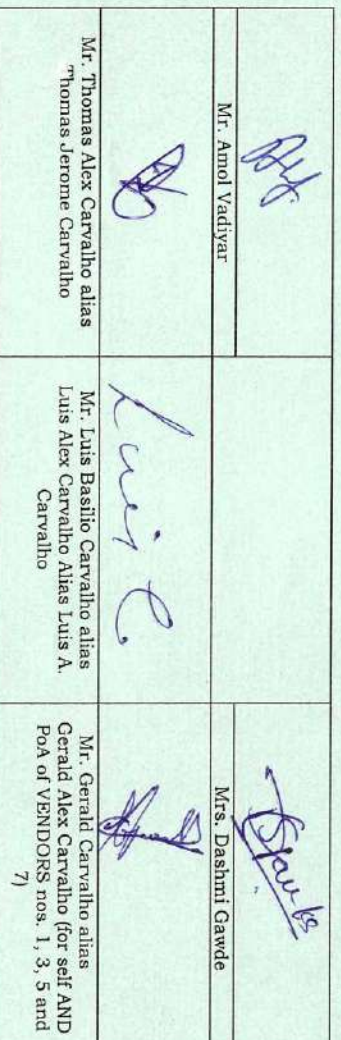 Mr. Amol Vadiyar
Mrs. Dashmi Gawde
Luis C.
Mr. Thomas Alex Carvalho alias
Thomas Jerome Carvalho
Mr. Luis Basilio Carvalho alias
Luis Alex Carvalho Alias Luis A.
Carvalho
Mr. Gerald Carvalho alias
Gerald Alex Carvalho (for self AND
PoA of VENDORS nos. 1, 3, 5 and
7)